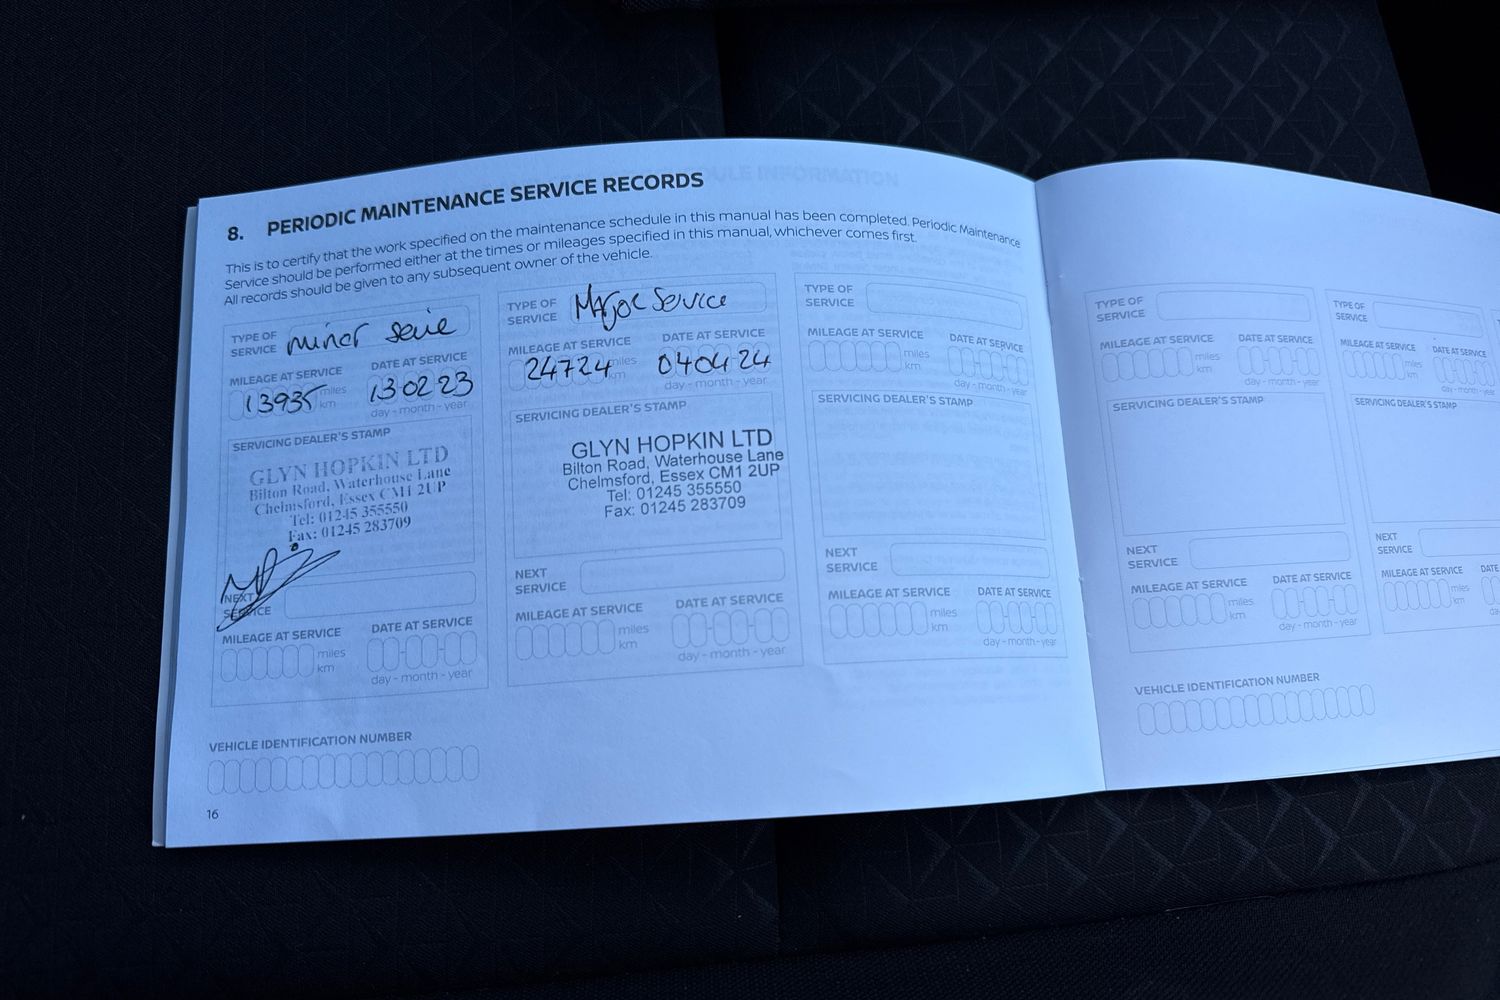 8. PERIODIC MAINTENANCE SERVICE RECORDS
This is to certify that the work specified on the maintenance schedule in this manual has been completed. Periodic Maintenance
Service should be performed either at the times or mileages specified in this manual, whichever comes first.
All records should be given to any subsequent owner of the vehicle.
TYPE OF
SERVICE minor servie
MILEAGE AT SERVICE DATE AT SERVICE
13935 miles
km
13 02 23
day - month - year
SERVICING DEALER'S STAMP
GLYN HOPKIN LTD
Bilton Road, Waterhouse Lane
Chelmsford, Essex CM1 2UP
Tel: 01245 355550
Fax: 01245 283709
NEXT
SERVICE
MILEAGE AT SERVICE DATE AT SERVICE
miles
km
day - month - year
TYPE OF
SERVICE Major Service
MILEAGE AT SERVICE DATE AT SERVICE
24724 miles
km
04 04 24
day - month - year
SERVICING DEALER'S STAMP
GLYN HOPKIN LTD
Bilton Road, Waterhouse Lane
Chelmsford, Essex CM1 2UP
Tel: 01245 355550
Fax: 01245 283709
NEXT
SERVICE
MILEAGE AT SERVICE DATE AT SERVICE
miles
km
day - month - year
TYPE OF
SERVICE
MILEAGE AT SERVICE DATE AT SERVICE
miles
km
day - month - year
SERVICING DEALER'S STAMP
NEXT
SERVICE
MILEAGE AT SERVICE DATE AT SERVICE
miles
km
day - month - year
VEHICLE IDENTIFICATION NUMBER
16
TYPE OF
SERVICE
MILEAGE AT SERVICE DATE AT SERVICE
miles
km
day - month - year
SERVICING DEALER'S STAMP
NEXT
SERVICE
MILEAGE AT SERVICE DATE AT SERVICE
miles
km
day - month - year
TYPE OF
SERVICE
MILEAGE AT SERVICE DATE AT SERVICE
miles
km
day - month - year
SERVICING DEALER'S STAMP
NEXT
SERVICE
MILEAGE AT SERVICE DATE
miles
km
VEHICLE IDENTIFICATION NUMBER